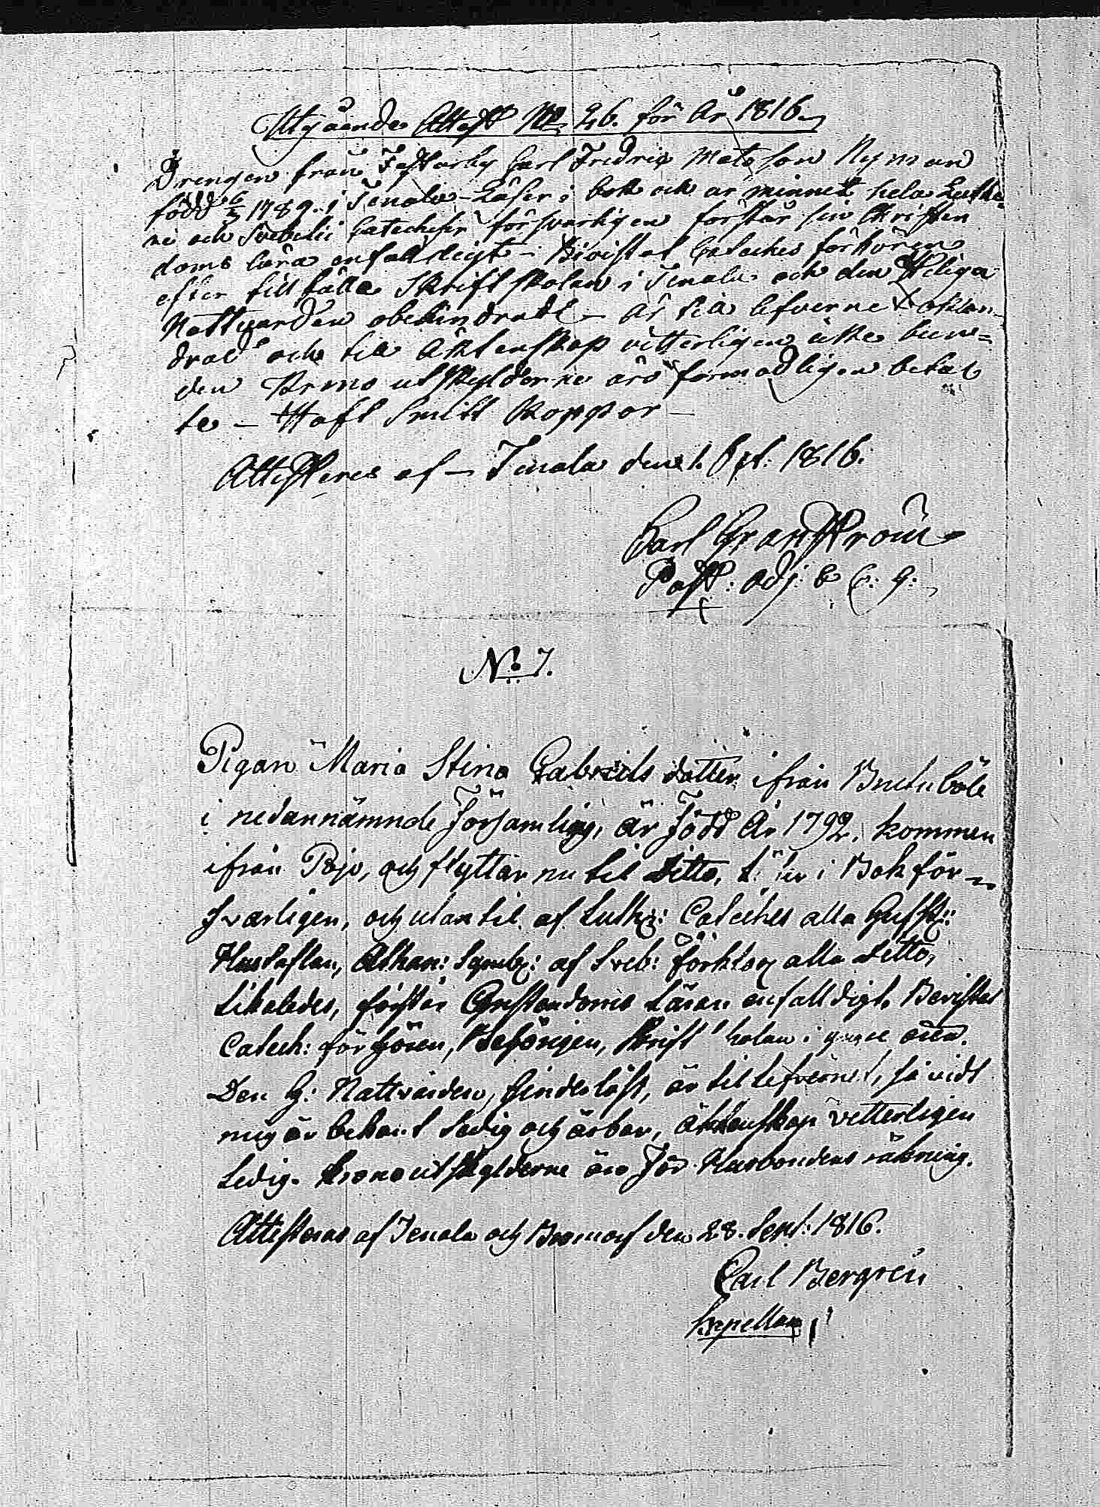 Utgående Attest No 26. för År 1816.
Drengen från Carl Fredric Matsson Nyman
född 1789. i Tenala - Läser i bok och ur minnet hela Luthe-
ri och Svebelii Cateches försvarligen förstår sin Christen
doms lära enfaldigt - Bivistat Cateches förhören
efter tillfälle Skriftskolan i Tenala och den Heliga
Nattvarden obehindradt - är till lefverne oklan-
drad och till Äktenskap vitterligen icke bun-
den Krono utskylderne äro förmodligen betal
te - Haft Smitt Koppor -
Attesteres af - Tenala den 1. Oct: 1816.
Carl Granström
Past: adj:
No 7.
Pigan Maria Stina Gabriels dotter ifrån Brutuböle
i nedannämnde Församling, är Född År 1792. kommen
ifrån Pojo, och flyttar nu til ditto, läser i Bok för-
svarligen, och utan til af Luth: Cateches alla
Hustaflan, Athan: Symb: af Sveb: Förklar alla ditto,
Likaledes, förstår Christendoms Läran enfalldigt. Bevistat
Catech: förhören, Skrift skolan i
Den H: Nattvarden, hinderlöst, är til lefvernet, så vidt
mig är bekant sedig och ärbar, Äktenskap vetterligen
Ledig. Krono utskylderne äro för Husbondens räkning.
Attesteras af Tenala och Bromarf den 28. Sept: 1816.
Carl Bergren
Capellan